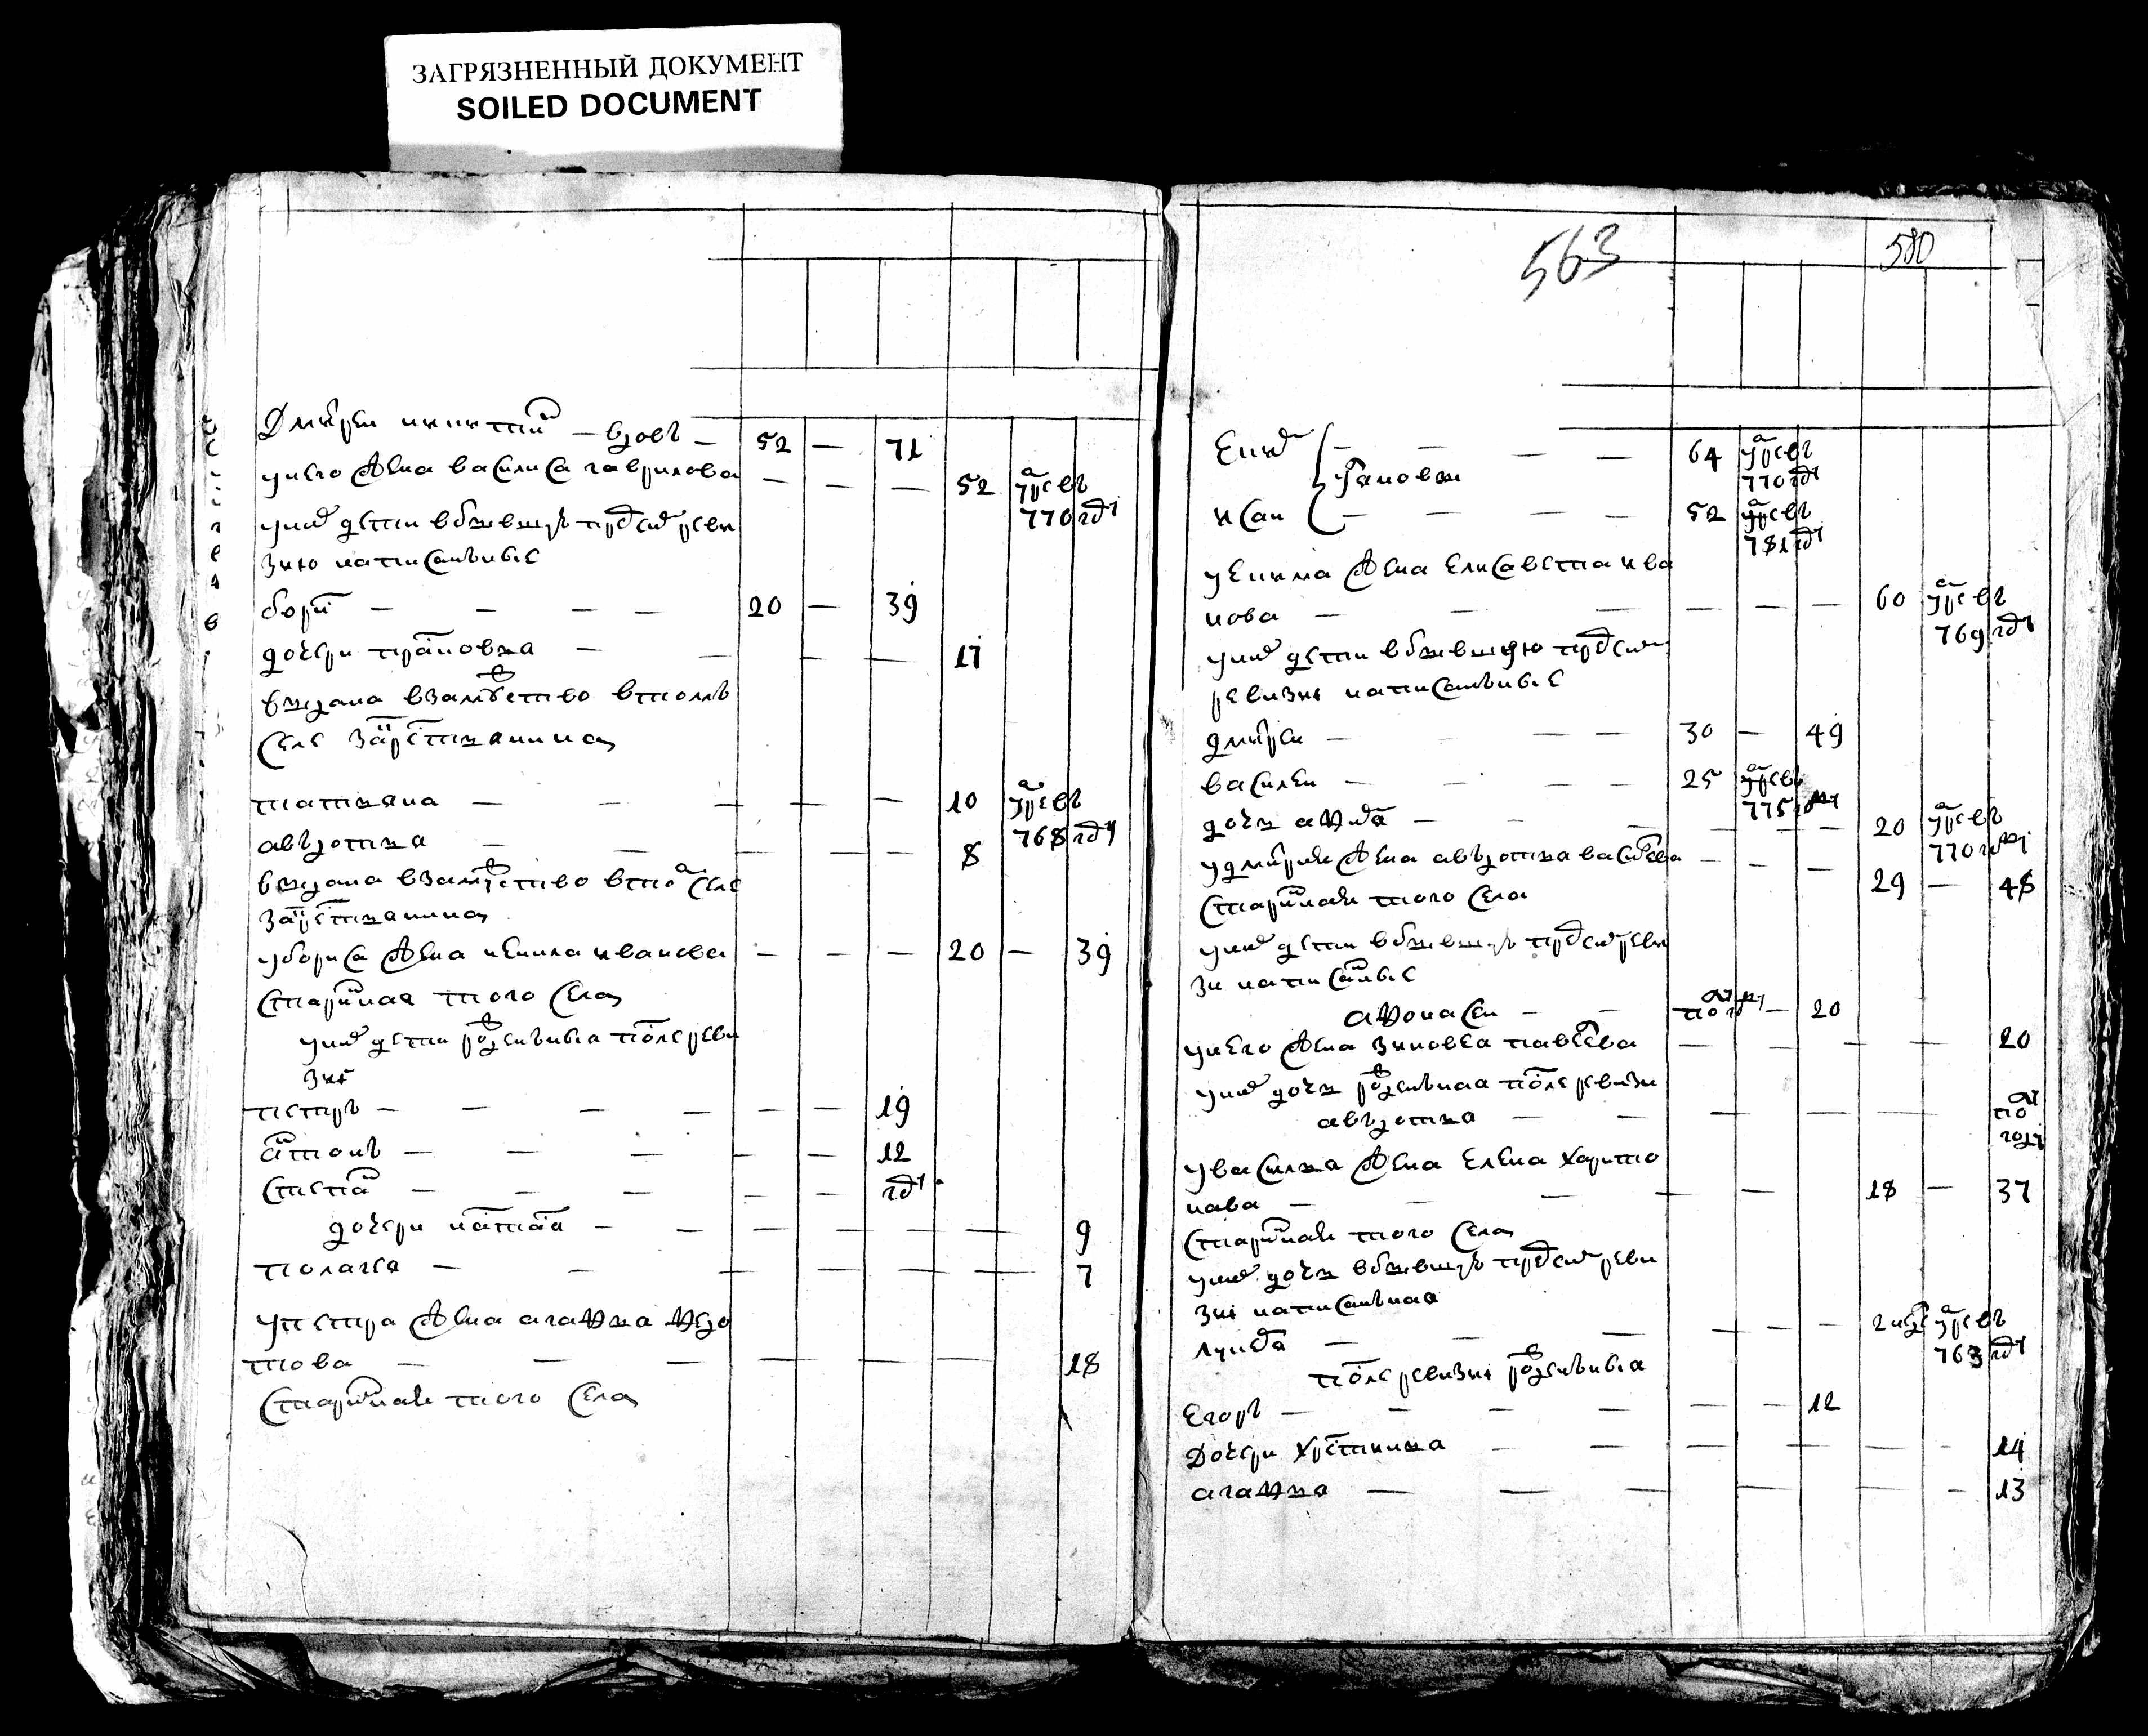 ЗАГРЯЗНЕННЫЙ ДОКУМЕНТ
SOILED DOCUMENT
Дмитреи никитин — вдовъ — 52 — 71
унего жена василиса гаврилова — — — 52 умре въ
770 году
уних дети вбывшую пред сим реви
зию написанныя
борис — — — — 20 — 39
дочери прасковья — — — — 17
выдана взамужество втомъ
селе за крестьянина
татьяна — — — — — 10 умре въ
768 году
авдотья — — — — 8
выдана взамужество втом селе
за крестьянина
убориса жена ненила иванова — — — 20 — 39
старинная того села
уних дети рожденныя после реви
зии
петръ — — — — — — 19
антонъ — — — — — 12
степан — — — — — году
дочери наталья — — — — — — — 9
пелагея — — — — — — — 7
упетра жена агафья федо
това — — — — — — 18
старинная того села
563
580
Еким — — — — 64 умре въ
770 году
ульяновы
исаи — — — — 52 умре въ
781 году
уекима жена елисавета ива
нова — — — — — — 60 умре въ
769 году
уних дети вбывшую пред сим
ревизию написанныя
дмитреи — — — 30 — 49
василеи — — — 25 умре въ
775 году
дочь афимья — — — — — 20 умре въ
770 году
удмитрия жена авдотья васильева — — — 29 — 48
старинная того села
уних дети вбывшую пред сим реви
зию написанные
афонасеи — — — 20
унего жена зиновея павлова — — — — 20
уних дочь рожденная после ревизии
авдотья — — — — — —
увасилья жена елена харито
нава — — — — 18 — 37
старинная того села
уних дочь вбывшую пред сим реви
зию написанная
лукерья — — — — — — умре въ
763 году
после ревизии рожденныя
Егоръ — — — — — — 12
Дочери христинья — — — — — — 14
агафья — — — — — — 13